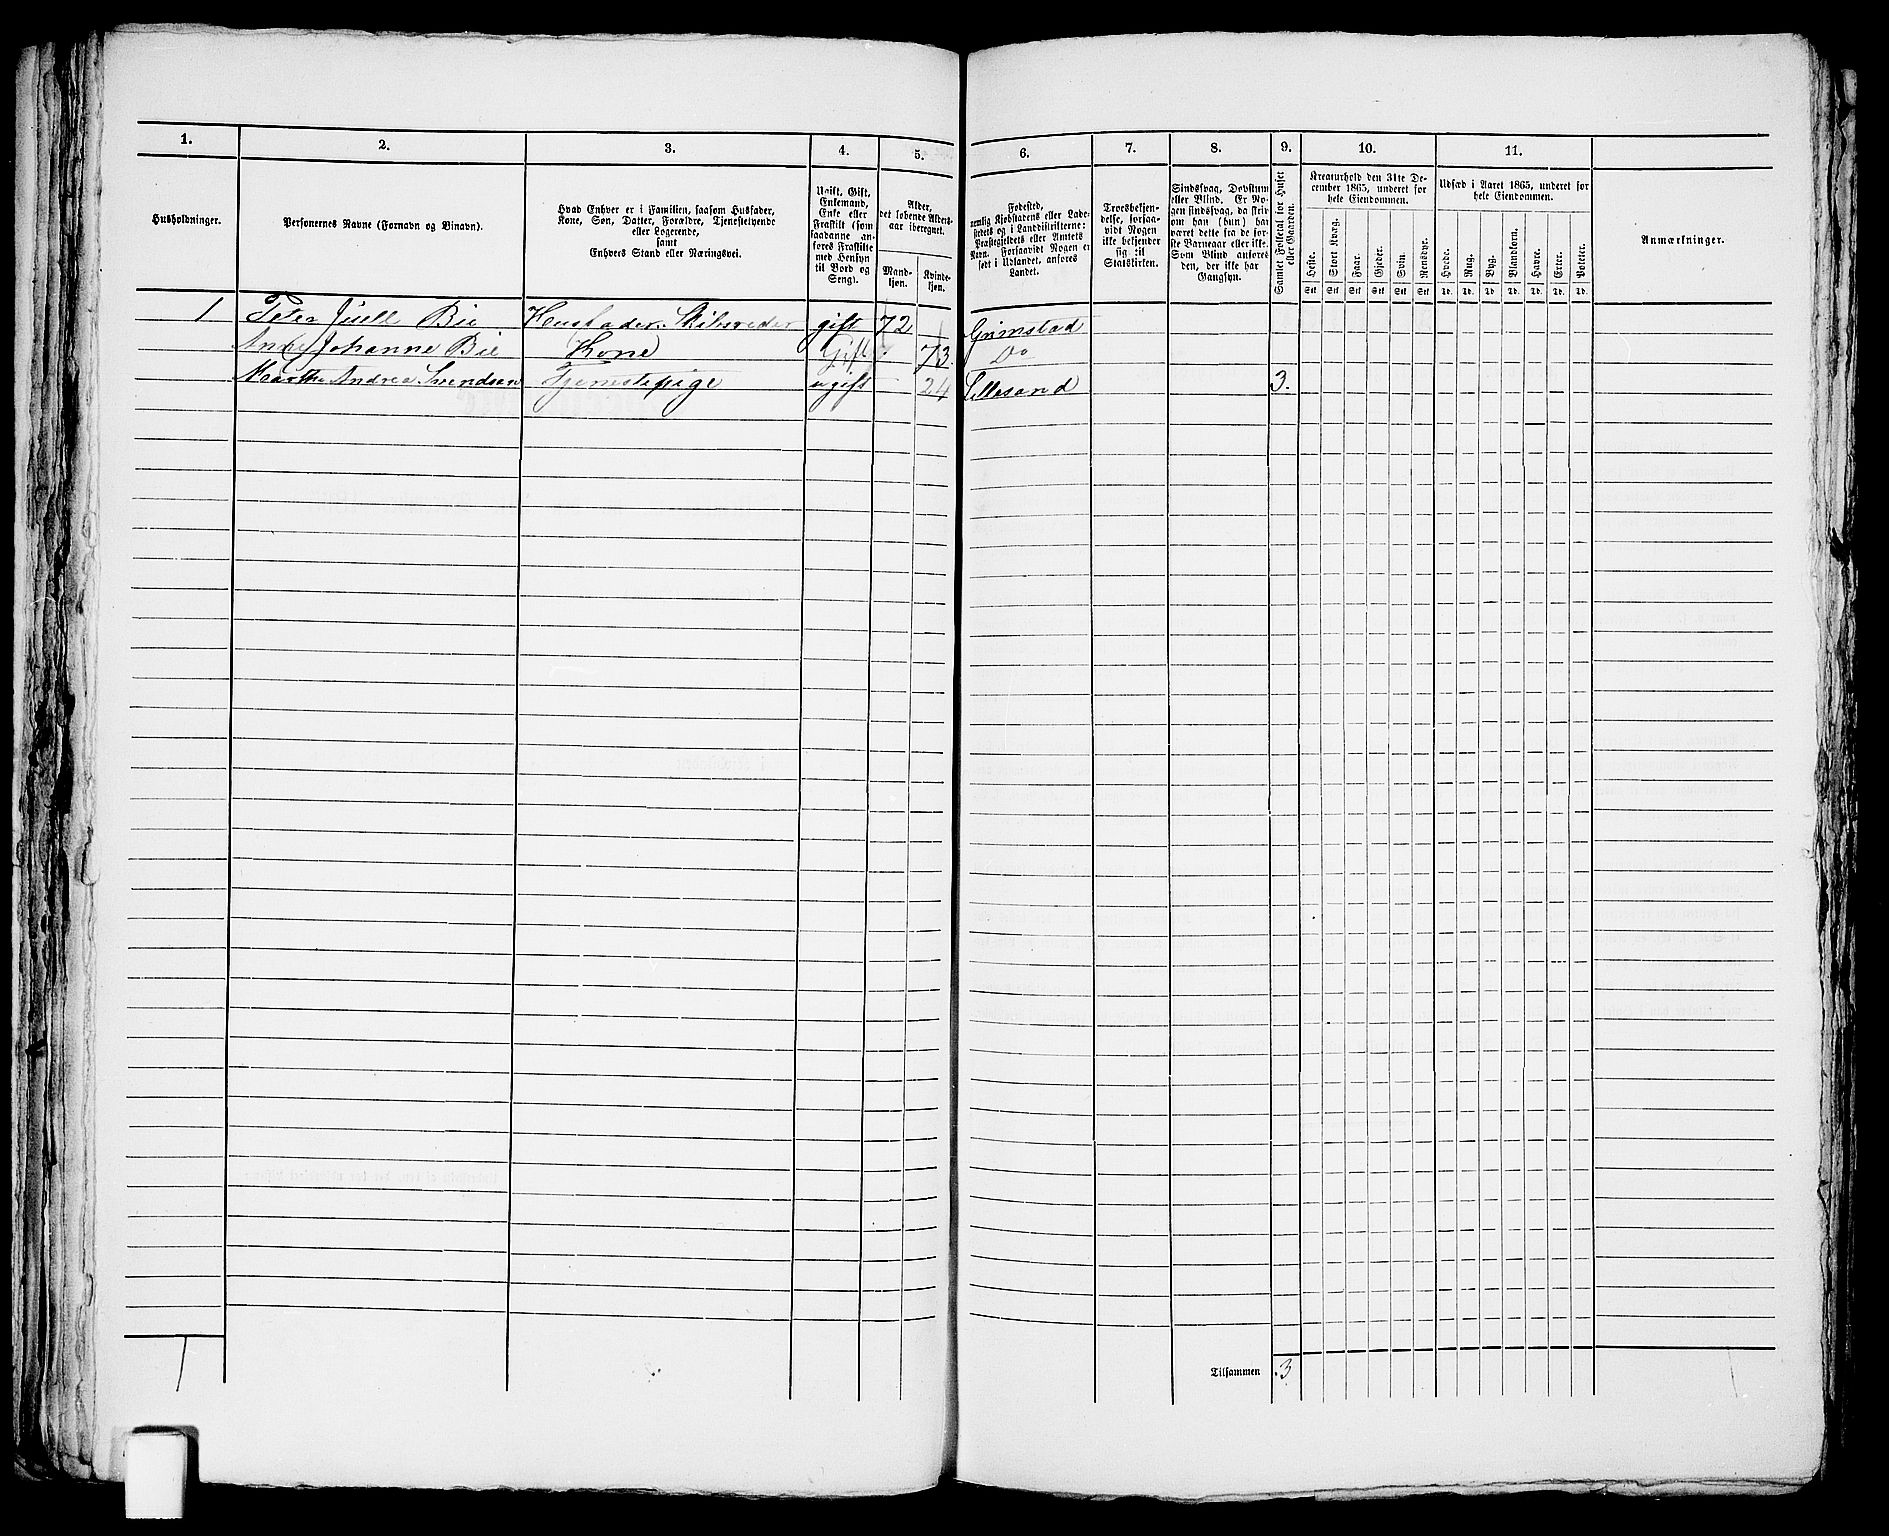 1. 2. 3. 4. 5. 6. 7. 8. 9. 10. 11.
Husholdninger.
Personernes Navne (Fornavn og Binavn).
Hvad Enhver er i Familien, saasom Husfader,
Kone, Søn, Datter, Forældre, Tjenestetyende
eller Logerende,
samt
Enhvers Stand eller Næringsvei.
Ugift, Gift,
Enkemand,
Enke eller
Fraskilt (som
saadanne an-
føres Fraskilte
med Hensyn
til Bord og
Seng).
Alder,
det løbende Alders-
aar iberegnet.
Mand-
kjøn.
Kvinde-
kjøn.
Fødested,
nemlig Kjøbstadens eller Lade-
stedets og i Landdistrikterne:
Præstegjeldets eller Amtets
Navn. Forsaavidt Nogen er
født i Udlandet, anføres
Landet.
Troesbekjen-
delse, forsaa-
vidt Nogen
ikke bekjender
sig til
Statskirken.
Sindssvag, Døvstum
eller Blind. Er No-
gen sindssvag, da skriv
om han (hun) har
været dette fra de før-
ste Barneaar eller ikke.
Som Blind anføres
den, der ikke har
Gangsyn.
Samlet Folketal for Huset
eller Gaarden.
Kreaturhold den 31te De-
cember 1865, underet for
hele Eiendommen.
Heste. Stort Kvæg. Faar. Gjeder. Svin. Rensdyr.
Stk Stk Stk Stk Stk Stk
Udsæd i Aaret 1865, underet for
hele Eiendommen.
Hvede. Rug. Byg. Blandkorn. Havre. Erter. Poteter.
Td. Td. Td Td. Td. Td. Td.
Anmærkninger.
1 Peter Juell Bie Husfader. Skibsreder gift 72 Grimstad
Anne Johanne Bie Kone Gift 73. Do
Marthe Andrea Svendsen Tjenestepige ugift 24 Lillesand 3.
1
Tilsammen 3